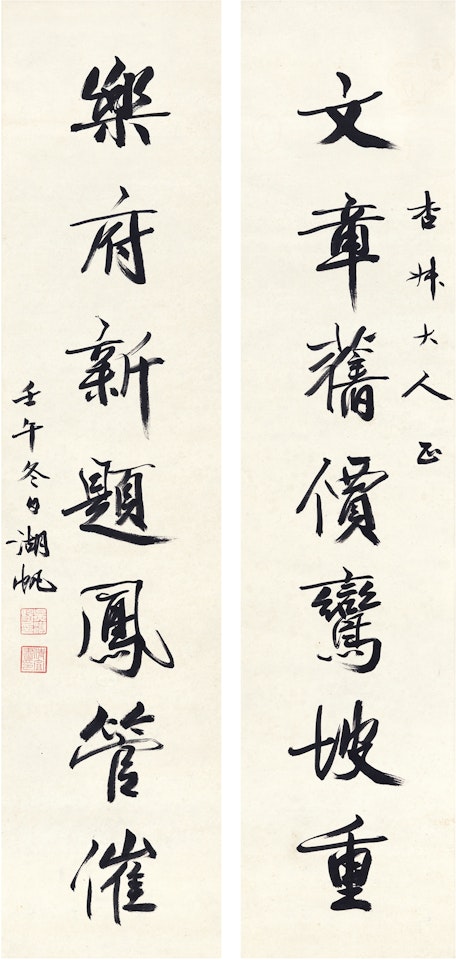 杏林大人正
文章舊價鸞坡重
樂府新題鳳管催
壬午冬日湖帆